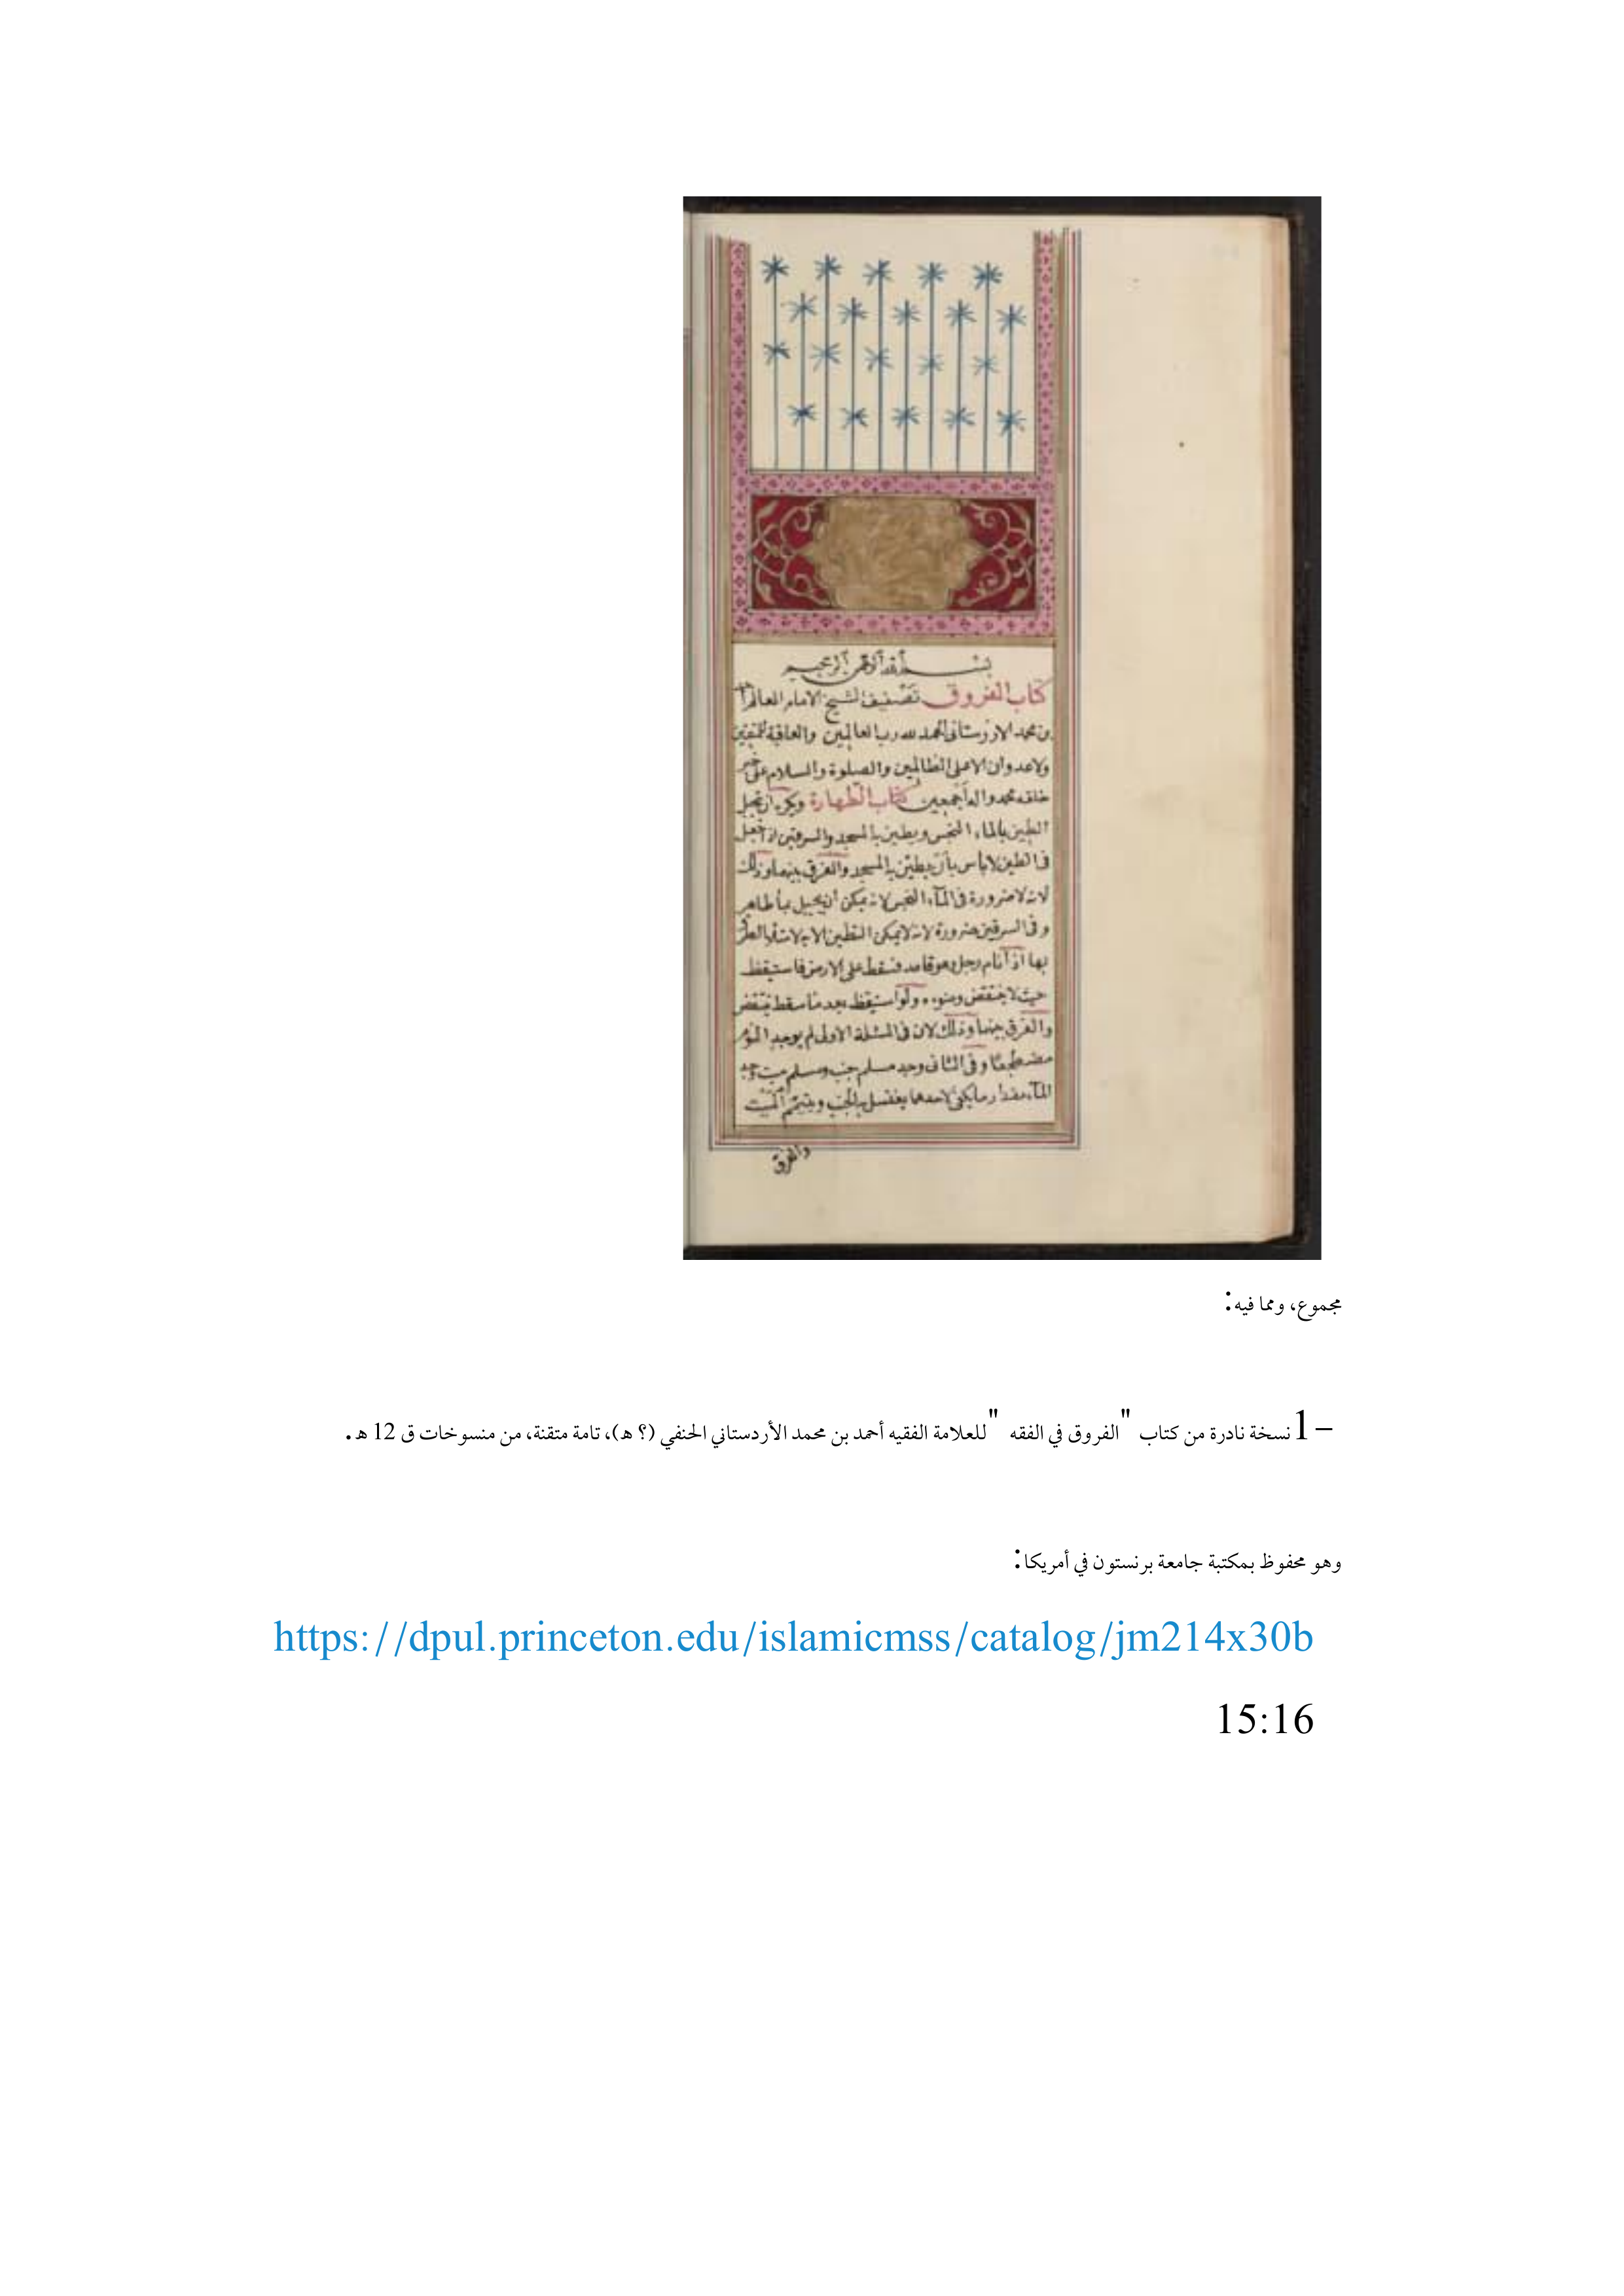 بسم الله الرحمن الرحيم
كتاب الفروق تصنيف الشيخ الامام العالم
بن محمد الاردستانى الحمد لله رب العالمين والعاقبة للمتقين
ولاعدوان الا على الظالمين والصلوة والسلام على خير
خلقه محمد واله اجمعين كتاب الطهارة ويكره ان يجبل
الطين بالماء النجس ويطين به المسجد والسرقين اذا جعل
فى الطين لاباس بأن يطين به المسجد والفرق بينهما وذلك
لانه لاضرورة فى المآء النجس لانه يمكن أن يجبل بمأ طاهر
وفى السرقين ضرورة لانه لايمكن التطين الا به
بها اذا نام رجل وهو قاعد فسقط على الارض فاستيقظ
حيث لاينتقض وضوءه ولو استيقظ بعد ما سقط ينتقض
والفرق بينهما وذلك لان فى المسئلة الاولى لم يوجد النوم
مضطجعا وفى الثانى وجد مسلم جنب ومسلم ميت وجد
المآء مقدار مايكفى لاحدهما يغتسل به الجنب ويتيمم الميت
والفرق
مجموع، ومما فيه:
1– نسخة نادرة من كتاب "الفروق في الفقه "للعلامة الفقيه أحمد بن محمد الأردستاني الحنفي (؟ هـ)، تامة متقنة، من منسوخات ق 12 هـ.
وهو محفوظ بمكتبة جامعة برنستون في أمريكا:
https://dpul.princeton.edu/islamicmss/catalog/jm214x30b
15:16